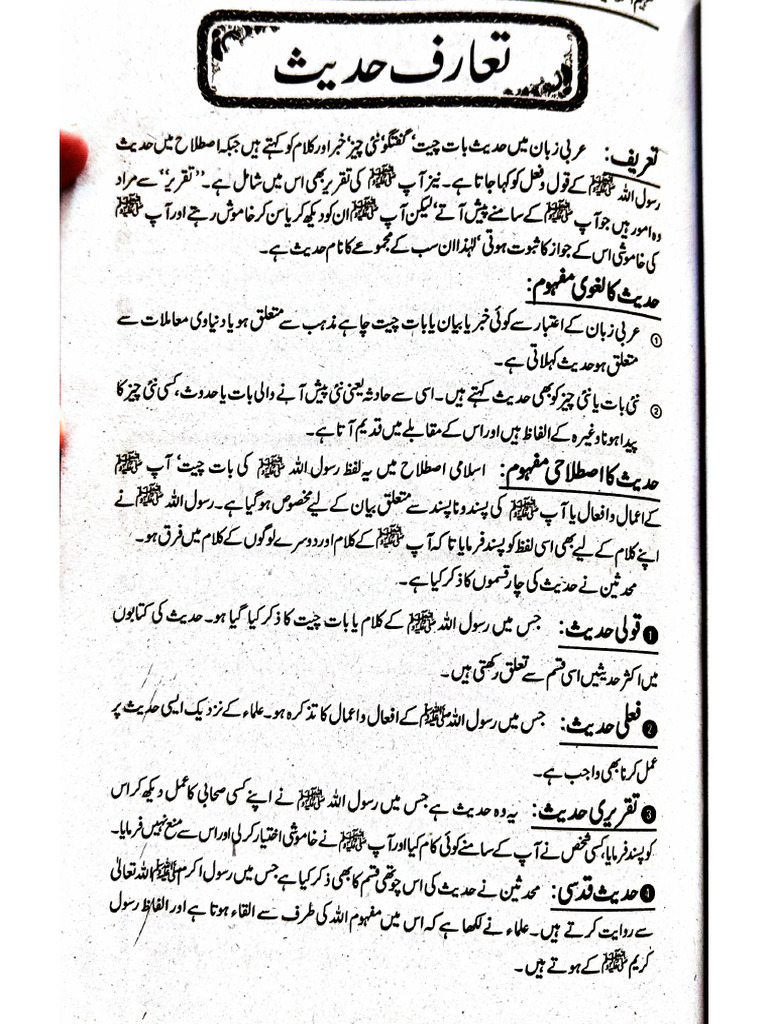 تعارف حدیث
تعریف: عربی زبان میں حدیث بات چیت، گفتگو، نئی چیز، خبر اور کلام کو کہتے ہیں جبکہ اصطلاح میں حدیث
رسول اللہ ﷺ کے قول و فعل کو کہا جاتا ہے۔ نیز آپ ﷺ کی تقریر بھی اس میں شامل ہے۔ ’’تقریر‘‘ سے مراد
وہ امور ہیں جو آپ ﷺ کے سامنے پیش آتے، لیکن آپ ﷺ ان کو دیکھ کر یا سن کر خاموش رہتے اور آپ ﷺ
کی خاموشی اس کے جواز کا ثبوت ہوتی، لہٰذا ان سب کے مجموعے کا نام حدیث ہے۔
حدیث کا لغوی مفہوم:
① عربی زبان کے اعتبار سے کوئی خبر یا بیان یا بات چیت چاہے مذہب سے متعلق ہو یا دنیاوی معاملات سے
متعلق ہو حدیث کہلاتی ہے۔
② نئی بات یا نئی چیز کو بھی حدیث کہتے ہیں۔ اسی سے حادثہ یعنی نئی پیش آنے والی بات یا حدوث، کسی نئی چیز کا
پیدا ہونا وغیرہ کے الفاظ ہیں اور اس کے مقابلے میں قدیم آتا ہے۔
حدیث کا اصطلاحی مفہوم: اسلامی اصطلاح میں یہ لفظ رسول اللہ ﷺ کی بات چیت، آپ ﷺ
کے اعمال و افعال یا آپ ﷺ کی پسند و ناپسند سے متعلق بیان کے لیے مخصوص ہو گیا ہے۔ رسول اللہ ﷺ نے
اپنے کلام کے لیے بھی اسی لفظ کو پسند فرمایا تا کہ آپ ﷺ کے کلام اور دوسرے لوگوں کے کلام میں فرق ہو۔
محدثین نے حدیث کی چار قسموں کا ذکر کیا ہے۔
❶ قولی حدیث: جس میں رسول اللہ ﷺ کے کلام یا بات چیت کا ذکر کیا گیا ہو۔ حدیث کی کتابوں
میں اکثر حدیثیں اسی قسم سے تعلق رکھتی ہیں۔
❷ فعلی حدیث: جس میں رسول اللہ ﷺ کے افعال و اعمال کا تذکرہ ہو۔ علماء کے نزدیک ایسی حدیث پر
عمل کرنا بھی واجب ہے۔
❸ تقریری حدیث: یہ وہ حدیث ہے جس میں رسول اللہ ﷺ نے اپنے کسی صحابی کا عمل دیکھ کر اس
کو پسند فرمایا، کسی شخص نے آپ کے سامنے کوئی کام کیا اور آپ ﷺ نے خاموشی اختیار کر لی اور اس سے منع نہیں فرمایا۔
❹ حدیث قدسی: محدثین نے حدیث کی اس چوتھی قسم کا بھی ذکر کیا ہے جس میں رسول اکرم ﷺ اللہ تعالیٰ
سے روایت کرتے ہیں۔ علماء نے لکھا ہے کہ اس میں مفہوم اللہ کی طرف سے القاء ہوتا ہے اور الفاظ رسول
کریم ﷺ کے ہوتے ہیں۔